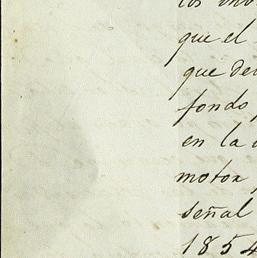 que el
que de
fondo
en la
motor
señal
1854